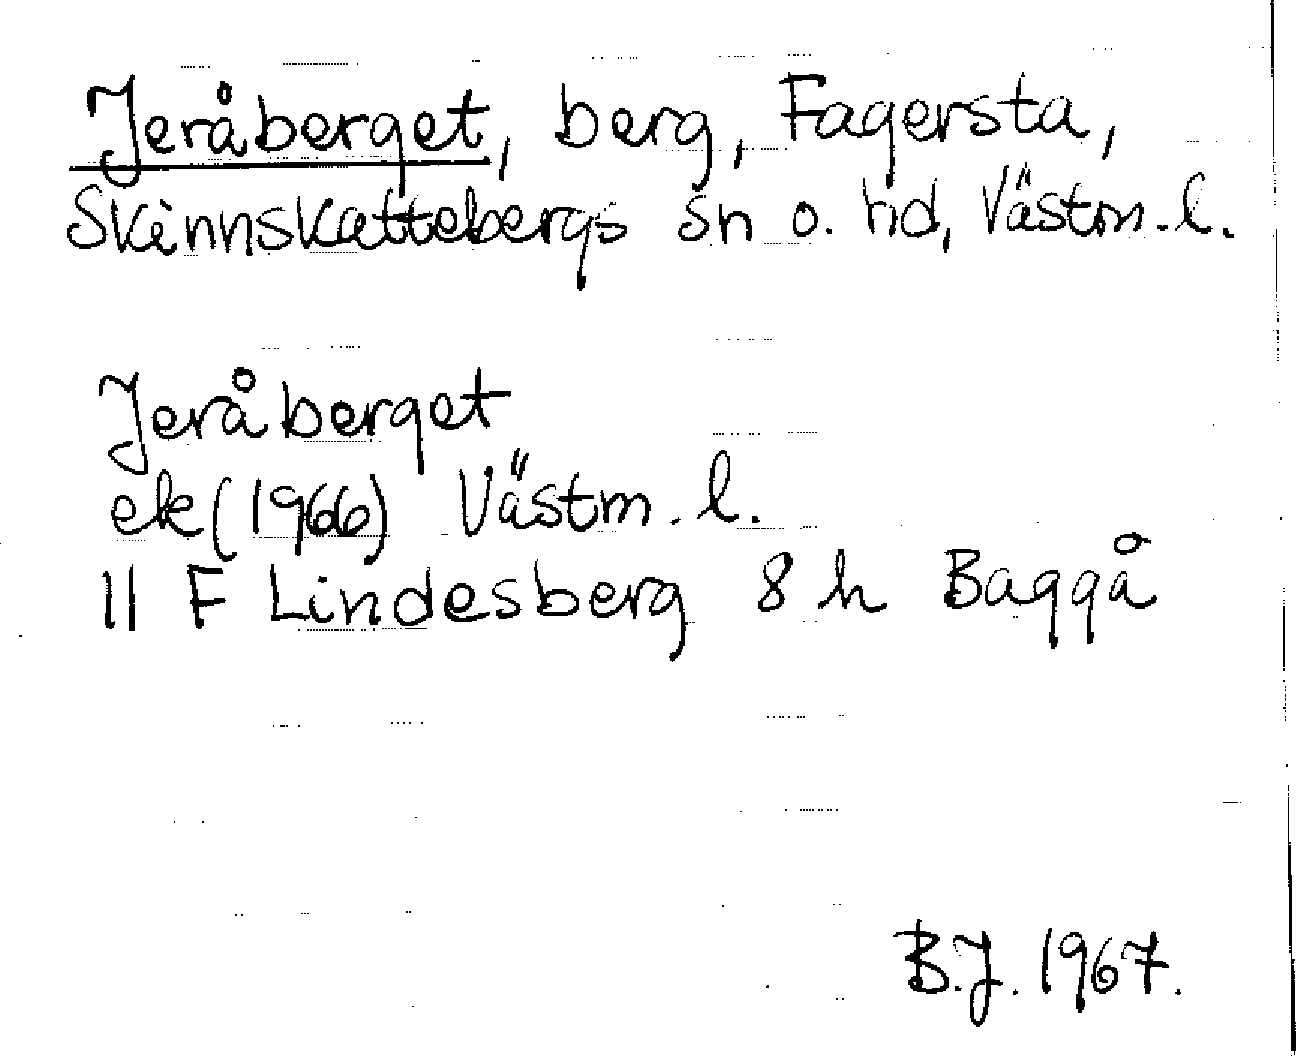 Jeråberget, berg, Fagersta,
Skinnskattebergs sn o. hd, Västm. l.
Jeråberget
ek (1966) Västm. l.
11 F Lindesberg 8 h Baggå
B.J. 1967.